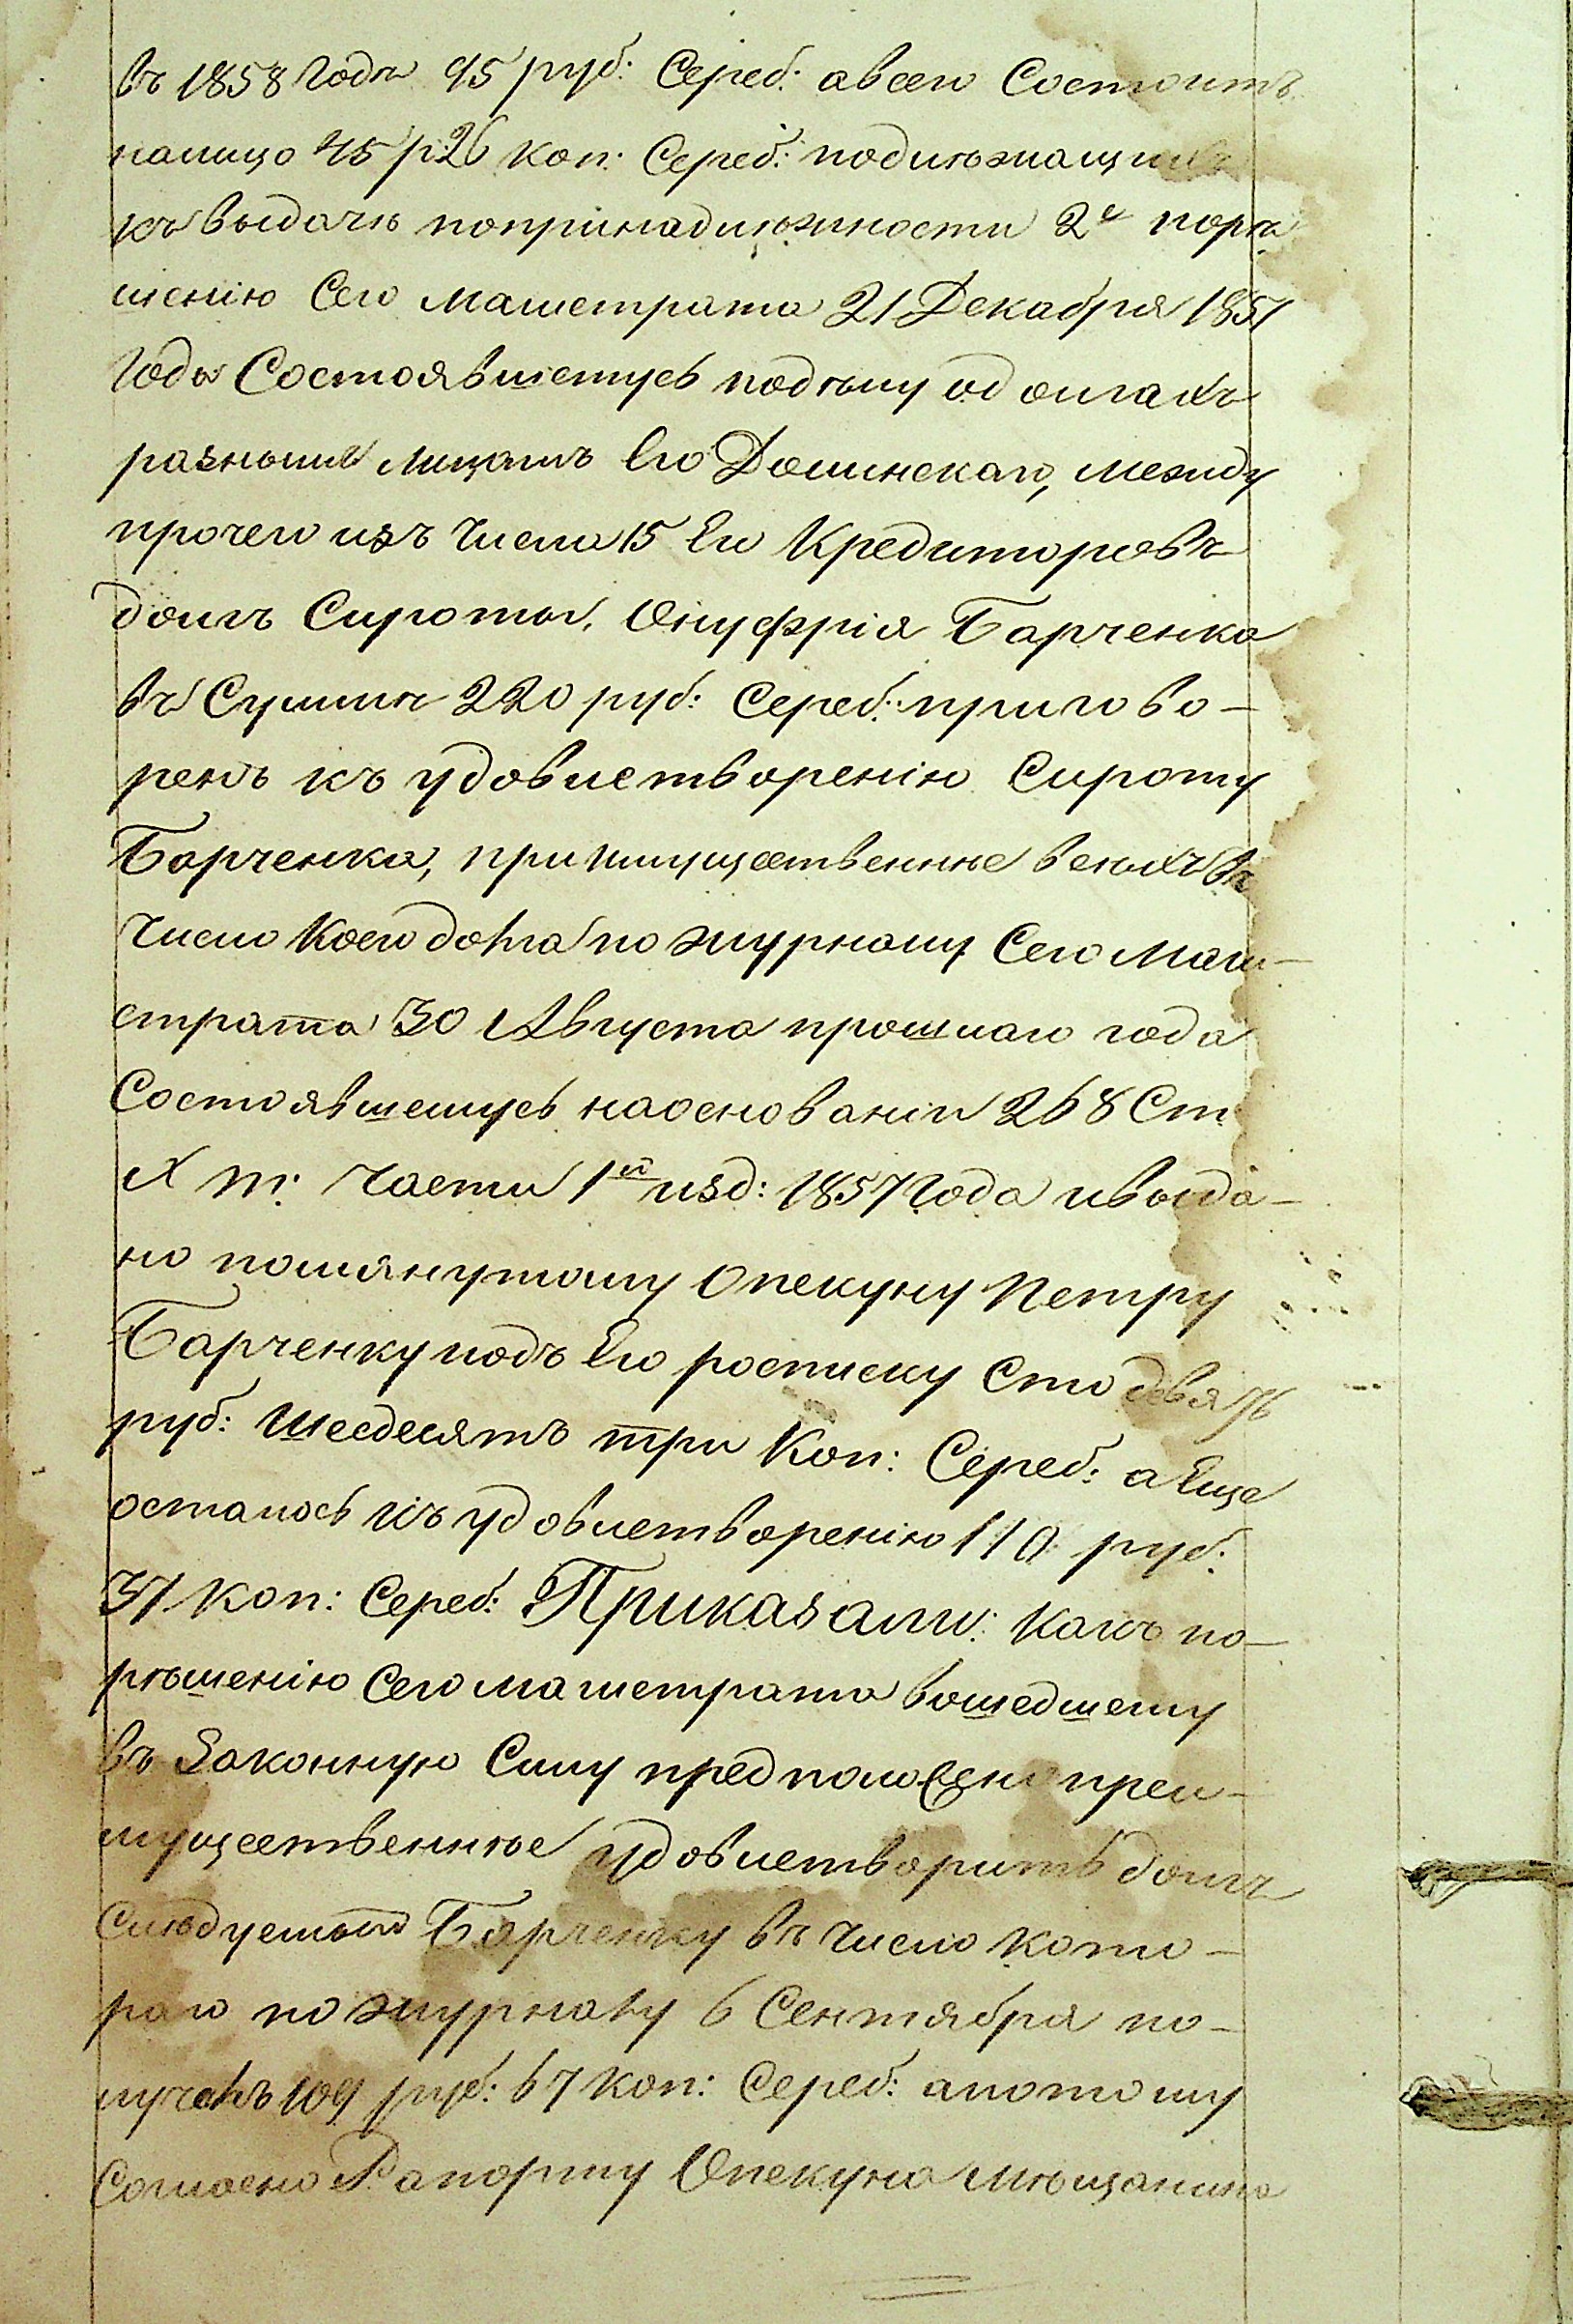 въ 1858 годѣ 95 руб: Сереб: авсего Состоитъ
налицо 45 р 26 коп: Сереб: подлѣжащихъ
къ выдачѣ попринадлѣжности 2е порѣ
шенію Сего магистрата 21 Декабря 1857
года Состоявшемусь подѣлу одолгахъ
разнымъ лицамъ Его Долинскаго, между
прочего изъ числа 15 Его Кредиторовъ
долгъ Сироты, Онуфрія Барченка
въ Суммѣ 220 руб: Сереб: пригово-
ренъ къ удовлетворенію Сироту
Барченка, приимущественнѣе всѣхъ въ
число коего долга по журналу Сего Маги-
страта 30 Августа прошлаго года
Состоявшемусь наоснованіи 268 Ст
X т: части 1й изд: 1857 года ивыда-
но помянутому Опекуну Петру
Барченку подъ Его росписку Сто девять
руб: шесдесятъ три Коп: Сереб: а Еще
осталось къ удовлетворенію 110 руб:
37 коп: Сереб: Приказали: какъ по-
рѣшенію Сего магистрата вошедшему
въ Законную Силу предположено преи-
мущественнѣе удовлетворить долгъ
слѣдуемый Барченку въ число кото-
раго по журналу 6 Сентября по-
лучалъ 109 руб: 67 коп: Сереб: апотому
Согласно Рапорту Опекуна мѣщанина